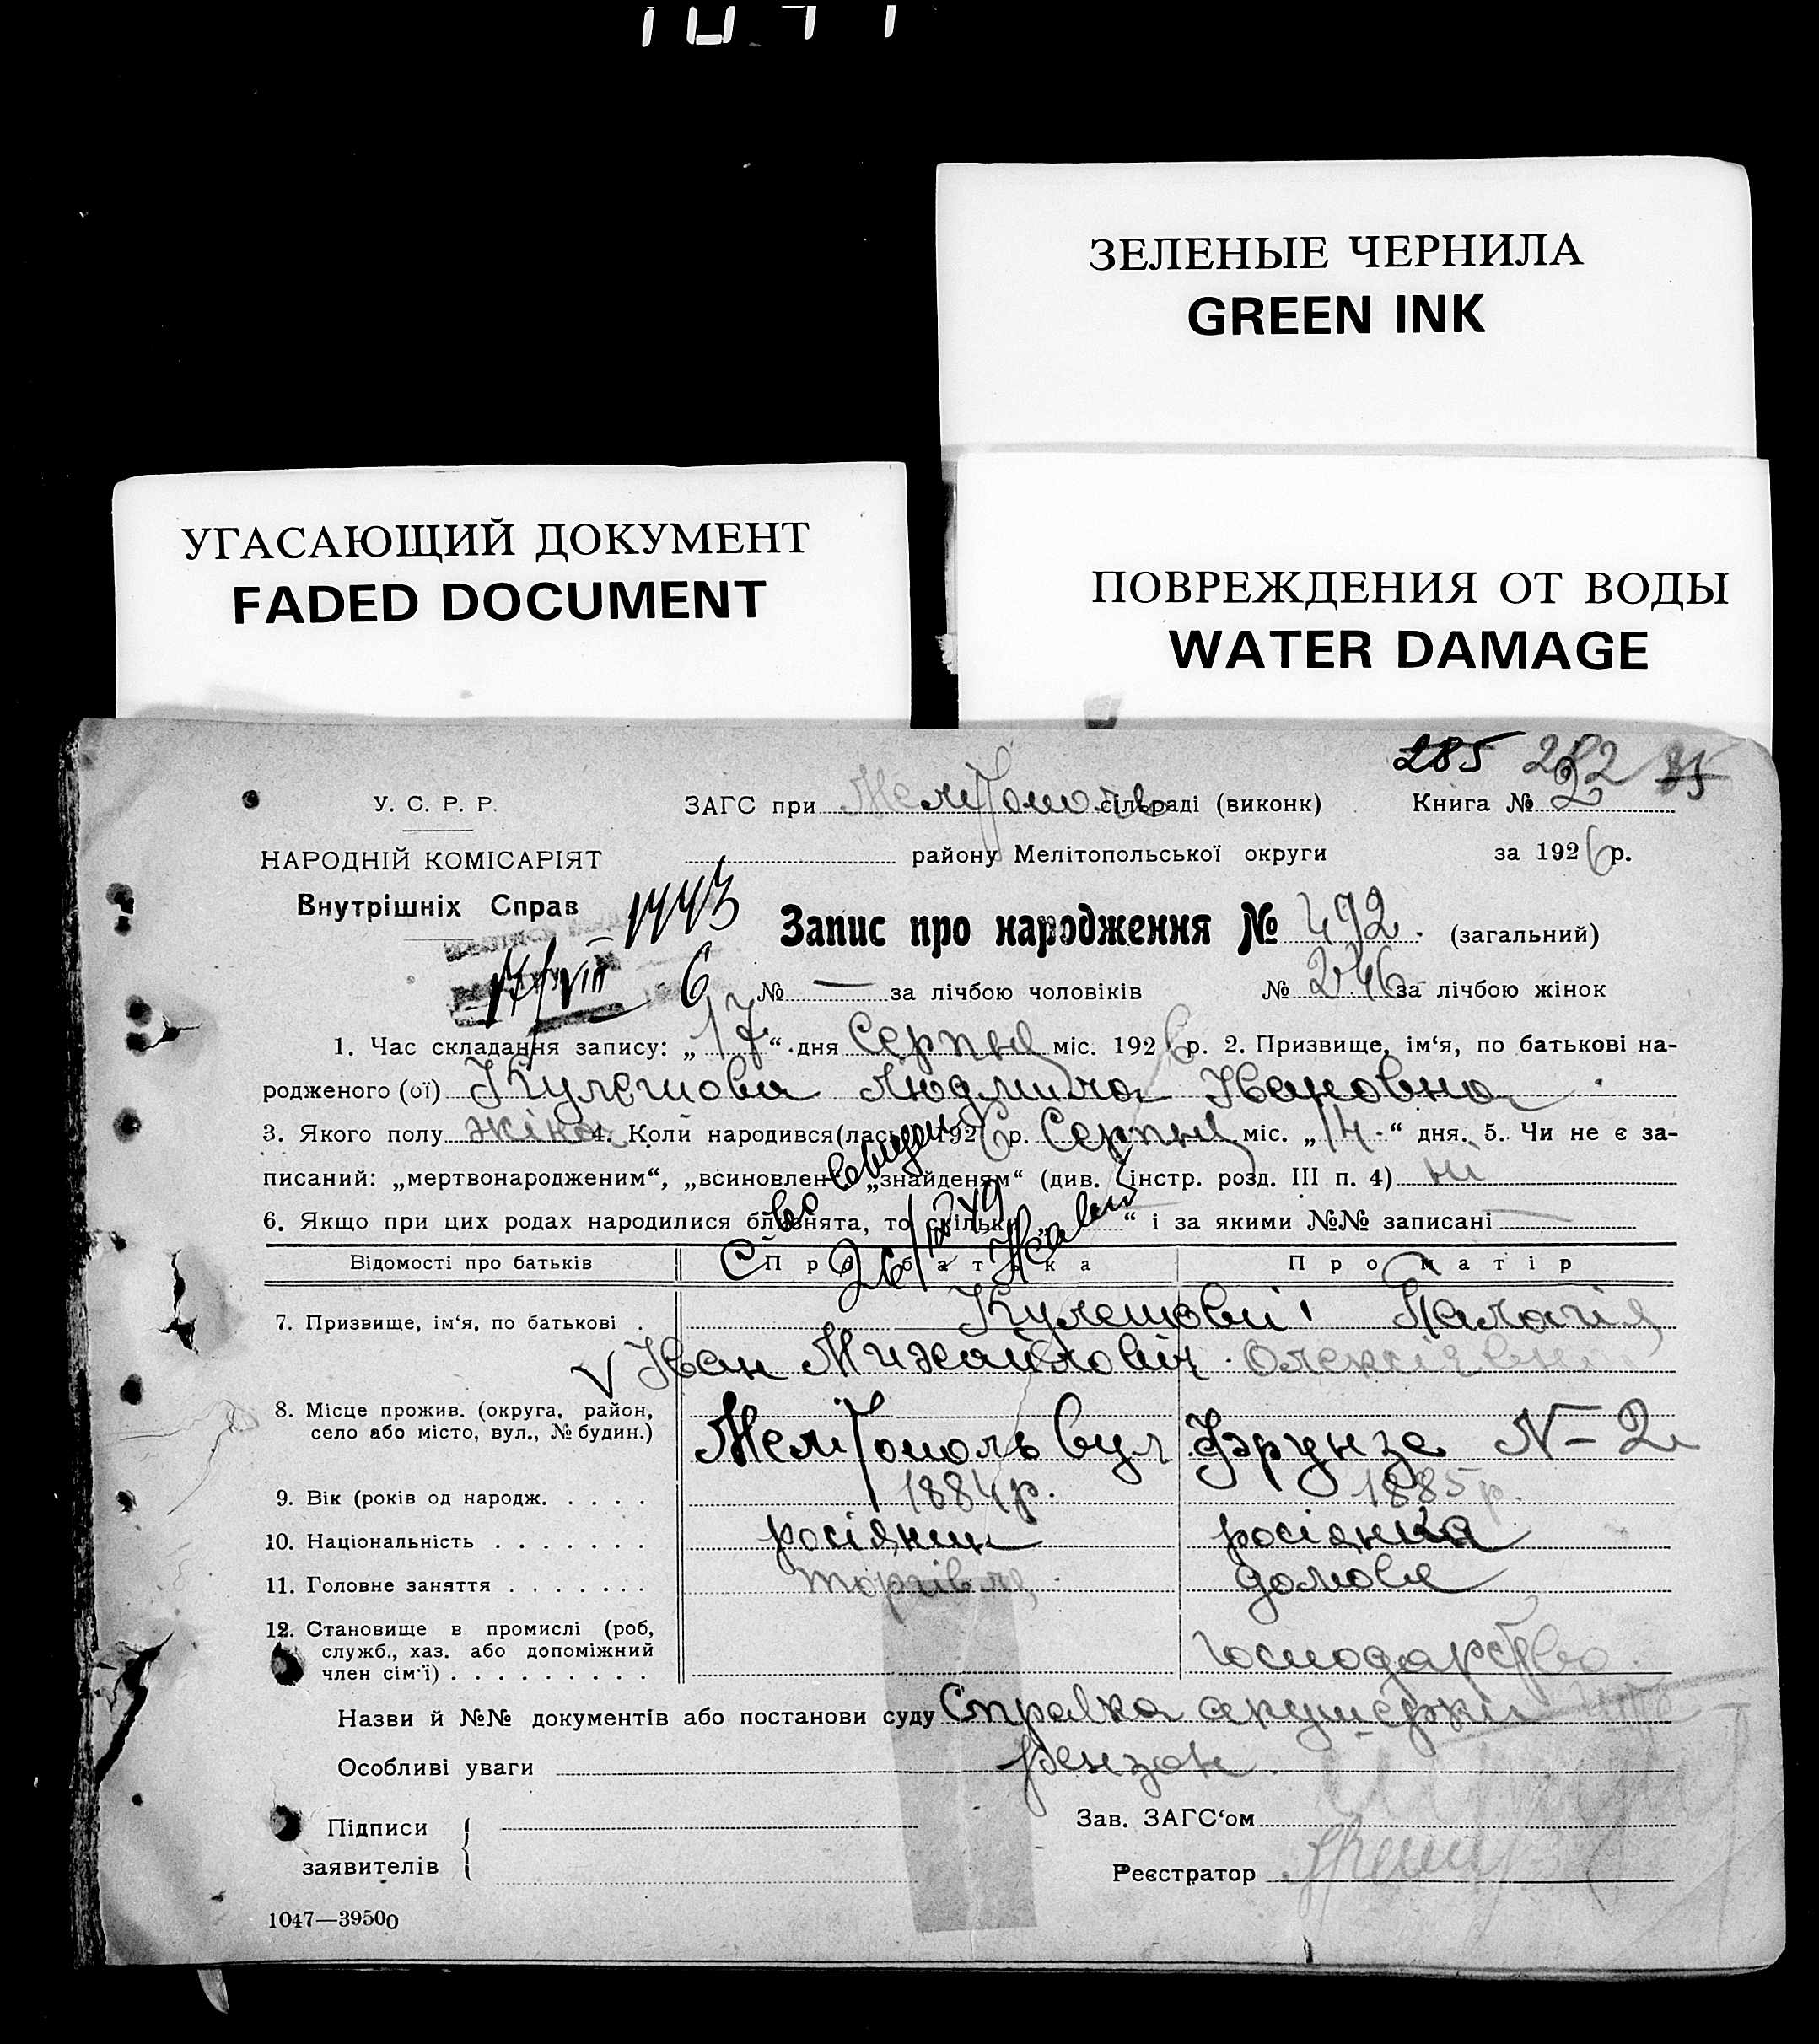 ЗЕЛЕНЫЕ ЧЕРНИЛА
GREEN INK
УГАСАЮЩИЙ ДОКУМЕНТ
FADED DOCUMENT
ПОВРЕЖДЕНИЯ ОТ ВОДЫ
WATER DAMAGE
285 282
У. С. Р. Р. ЗАГС при Мелітополь сільраді (виконк) Книга № 2
НАРОДНІЙ КОМІСАРІЯТ району Мелітопольської округи за 1926 р.
Внутрішніх Справ 1443 Запис про народження № 492. (загальний)
17/VIII 6 № — за лічбою чоловіків № 246 за лічбою жінок
1. Час складання запису: „17“ дня Серпня міс. 1926 р. 2. Призвище, ім‘я, по батькові на-
родженого (ої) Кулешова Людмила Івановна
3. Якого полу жіно 4. Коли народився(лась) 1926 р. Серпня міс. „14“ дня. 5. Чи не є за-
писаний: „мертвонародженим“, „всиновлен“ „знайденям“ (див. інстр. розд. III п. 4) ні
6. Якщо при цих родах народилися близнята, то скільки „ “ і за якими №№ записані —
Відомості про батьків Про батька Про матір
7. Призвище, ім‘я, по батькові Кулешови: Палагія
Іван Михайловіч Олексіевна
8. Місце прожив. (округа, район,
село або місто, вул., № будин.) Мелітополь вул Фрунзе N-2
9. Вік (років од народж. 1884 р. 1885 р.
10. Національність росіянин росіянка
11. Головне заняття торгівля домове
12. Становище в промислі (роб,
служб., хаз. або допоміжний господарство
член сім‘ї)
Назви й №№ документів або постанови суду Справка акушерки
Особливі уваги
Підписи Зав. ЗАГС‘ом
заявителів Реєстратор
1047—39500